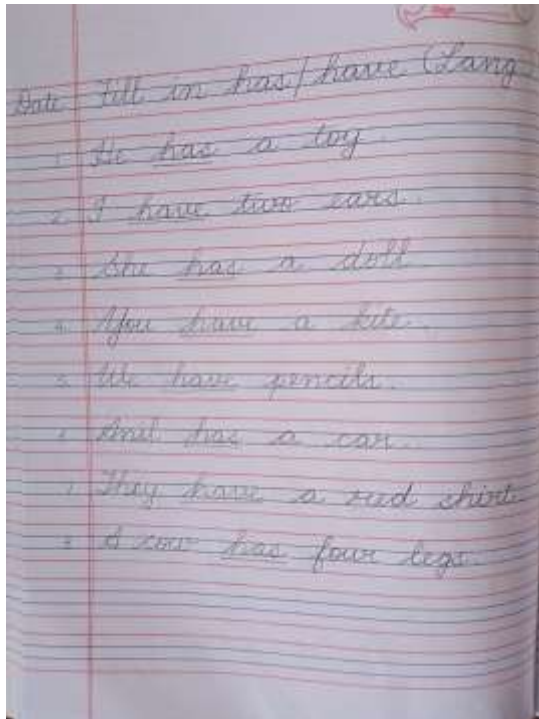 Date Fill in has/have (Lang
1. He has a toy.
2. I have two ears.
3. She has a doll.
4. You have a kite.
5. We have pencils.
6. Anil has a car.
7. They have a red shirt.
8. A cow has four legs.